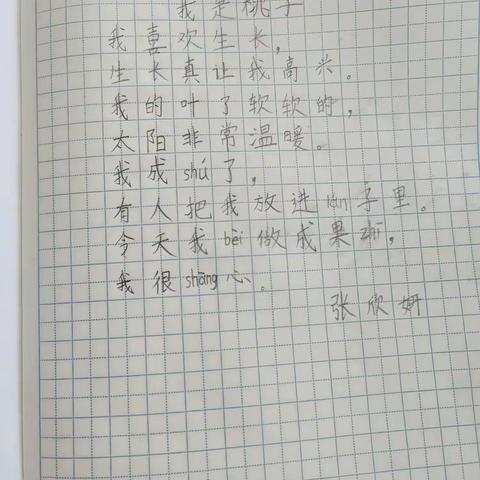 我是桃子
我喜欢生长，
生长真让我高兴。
我的叶了软软的，
太阳非常温暖。
我成shú了，
有人把我放进lán子里。
今天我bèi做成果zhī，
我很shāng心。
张欣妍